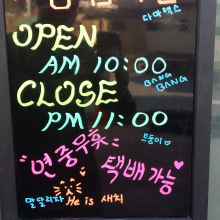 다이렉스
OPEN
AM 10:00
BANG
BANG
CLOSE
PM 11:00
뜨둥이
연중무휴
택배가능
말달리자 He is 새치